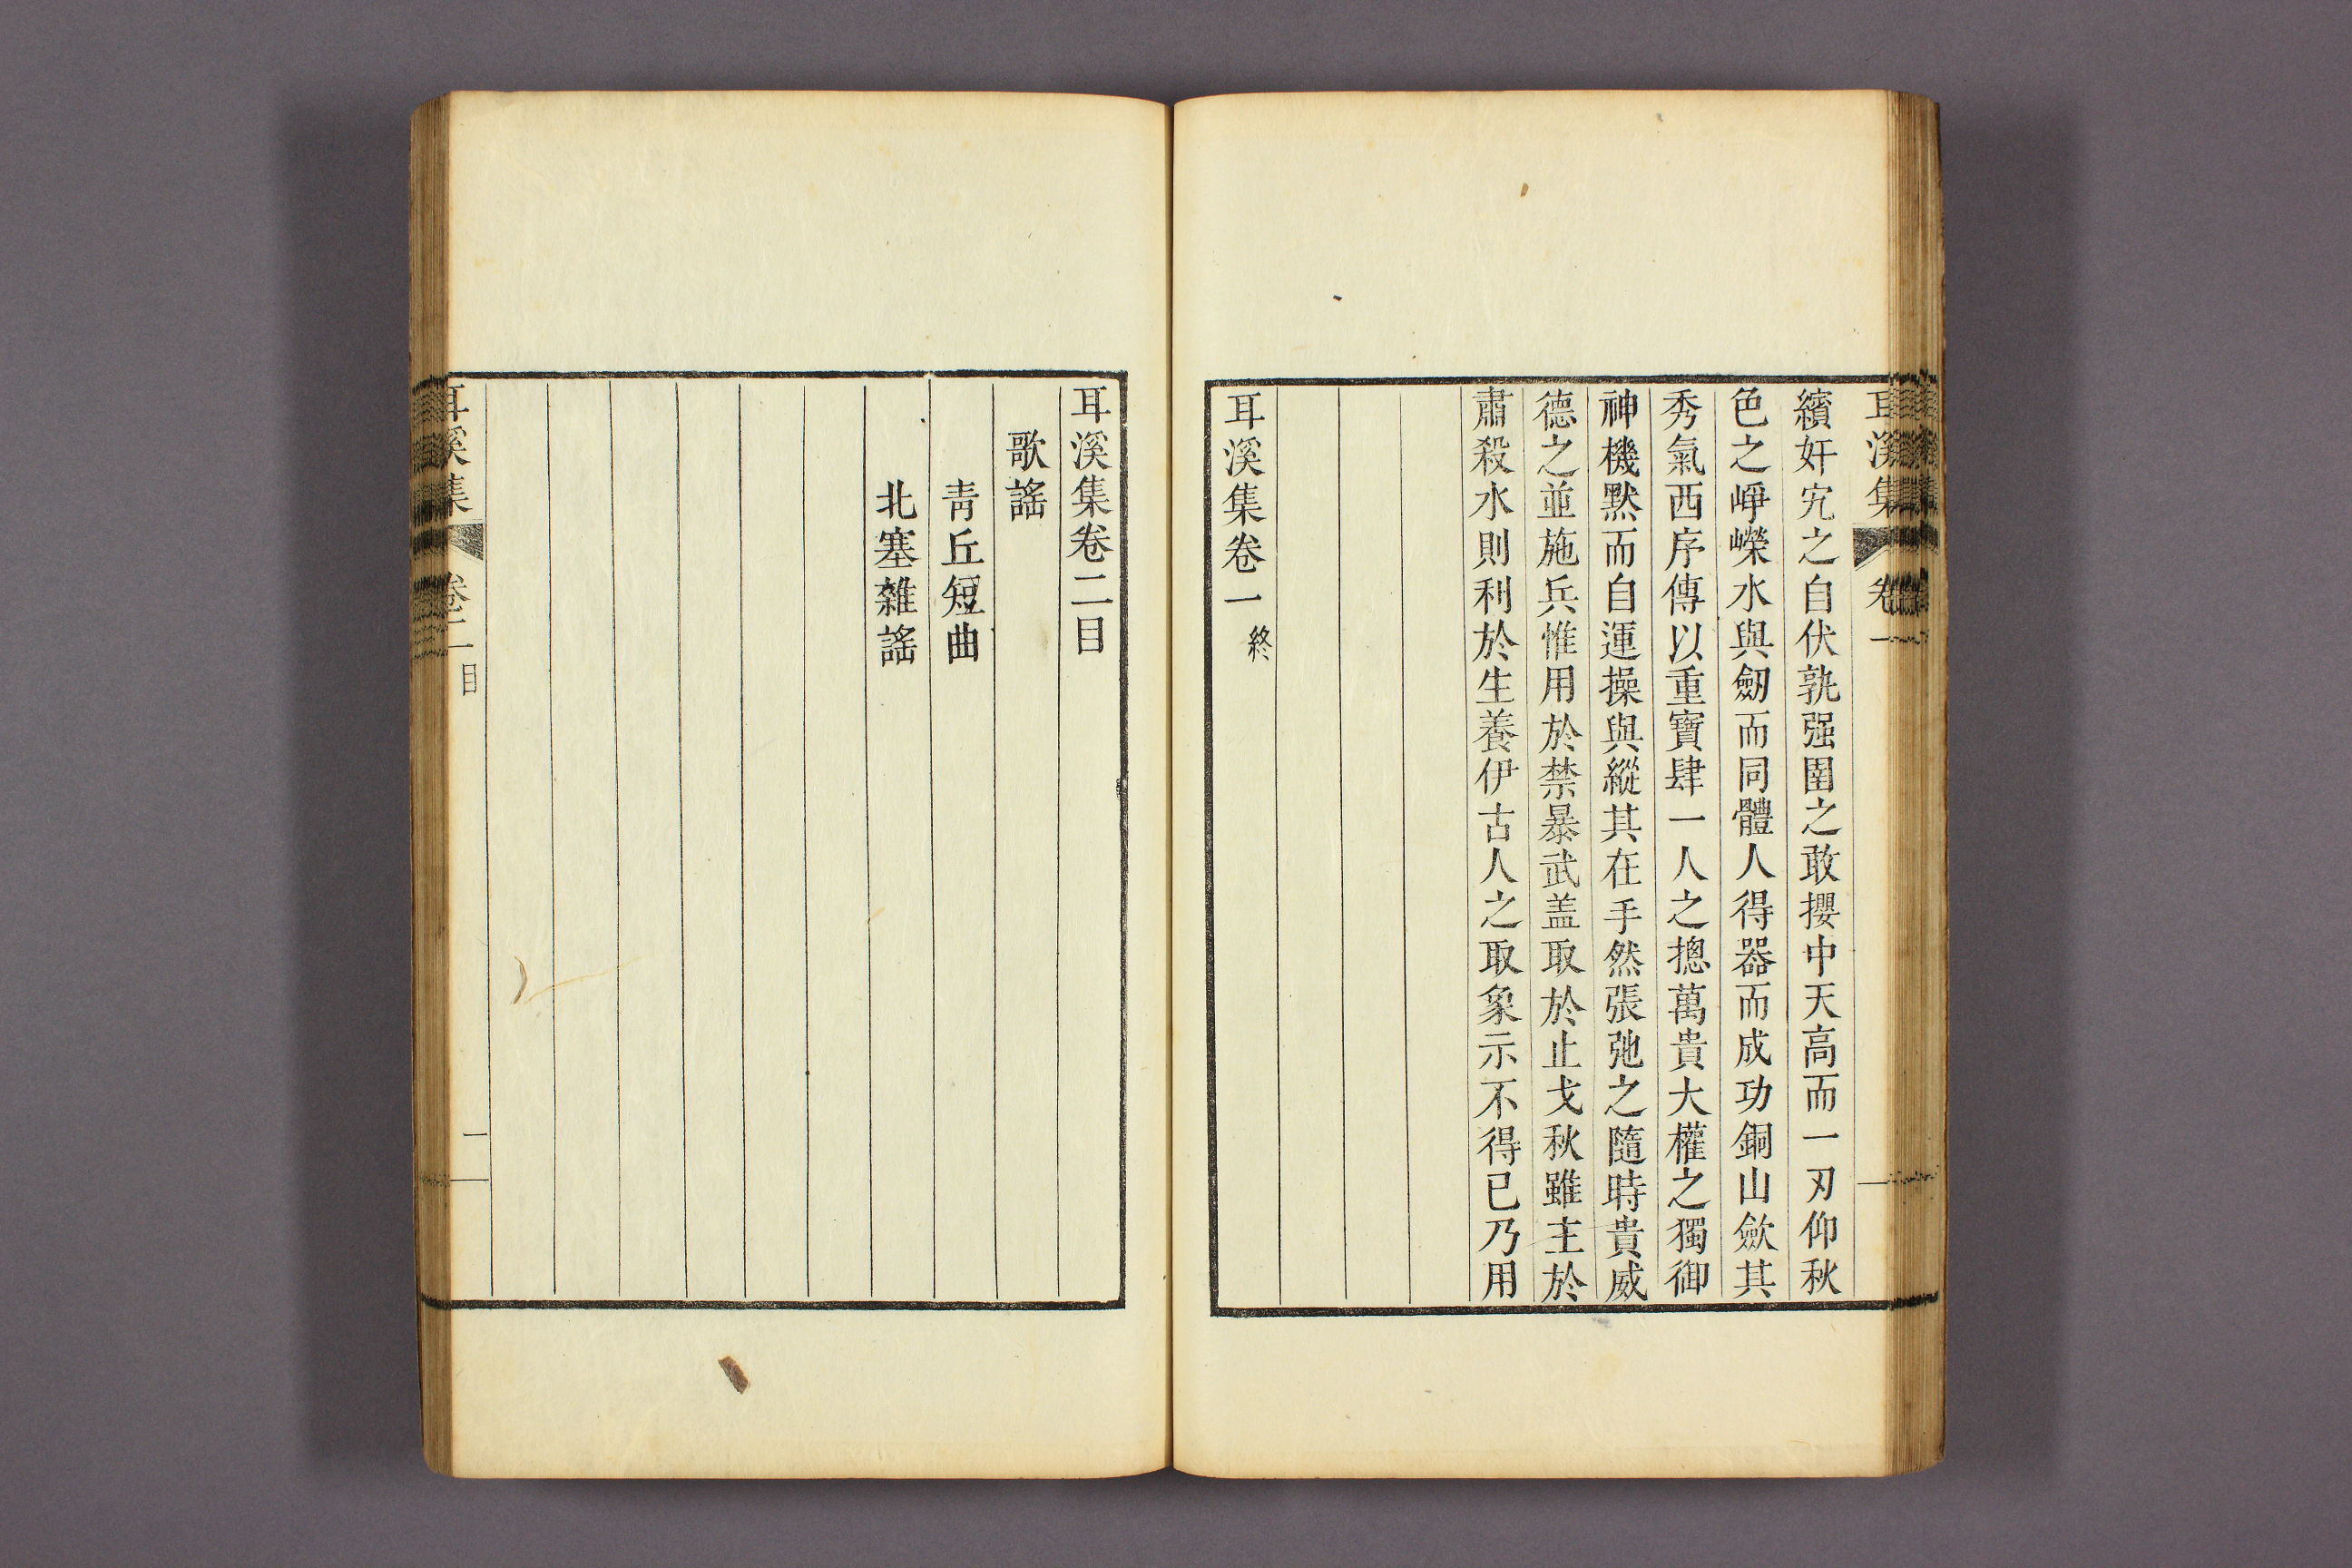 耳溪集 卷一
繽奸宄之自伏孰强圉之敢攖中天高而一刃仰秋
色之崢嶸水與劒而同體人得器而成功銅山歛其
秀氣西序傳以重寶肆一人之摠萬貴大權之獨御
神機默而自運操與縱其在手然張弛之隨時貴威
德之並施兵惟用於禁暴武盖取於止戈秋雖主於
肅殺水則利於生養伊古人之取象示不得已乃用
耳溪集卷一 終
耳溪集卷二目
歌謠
靑丘短曲
北塞雜謠
耳溪集 卷二 目 一